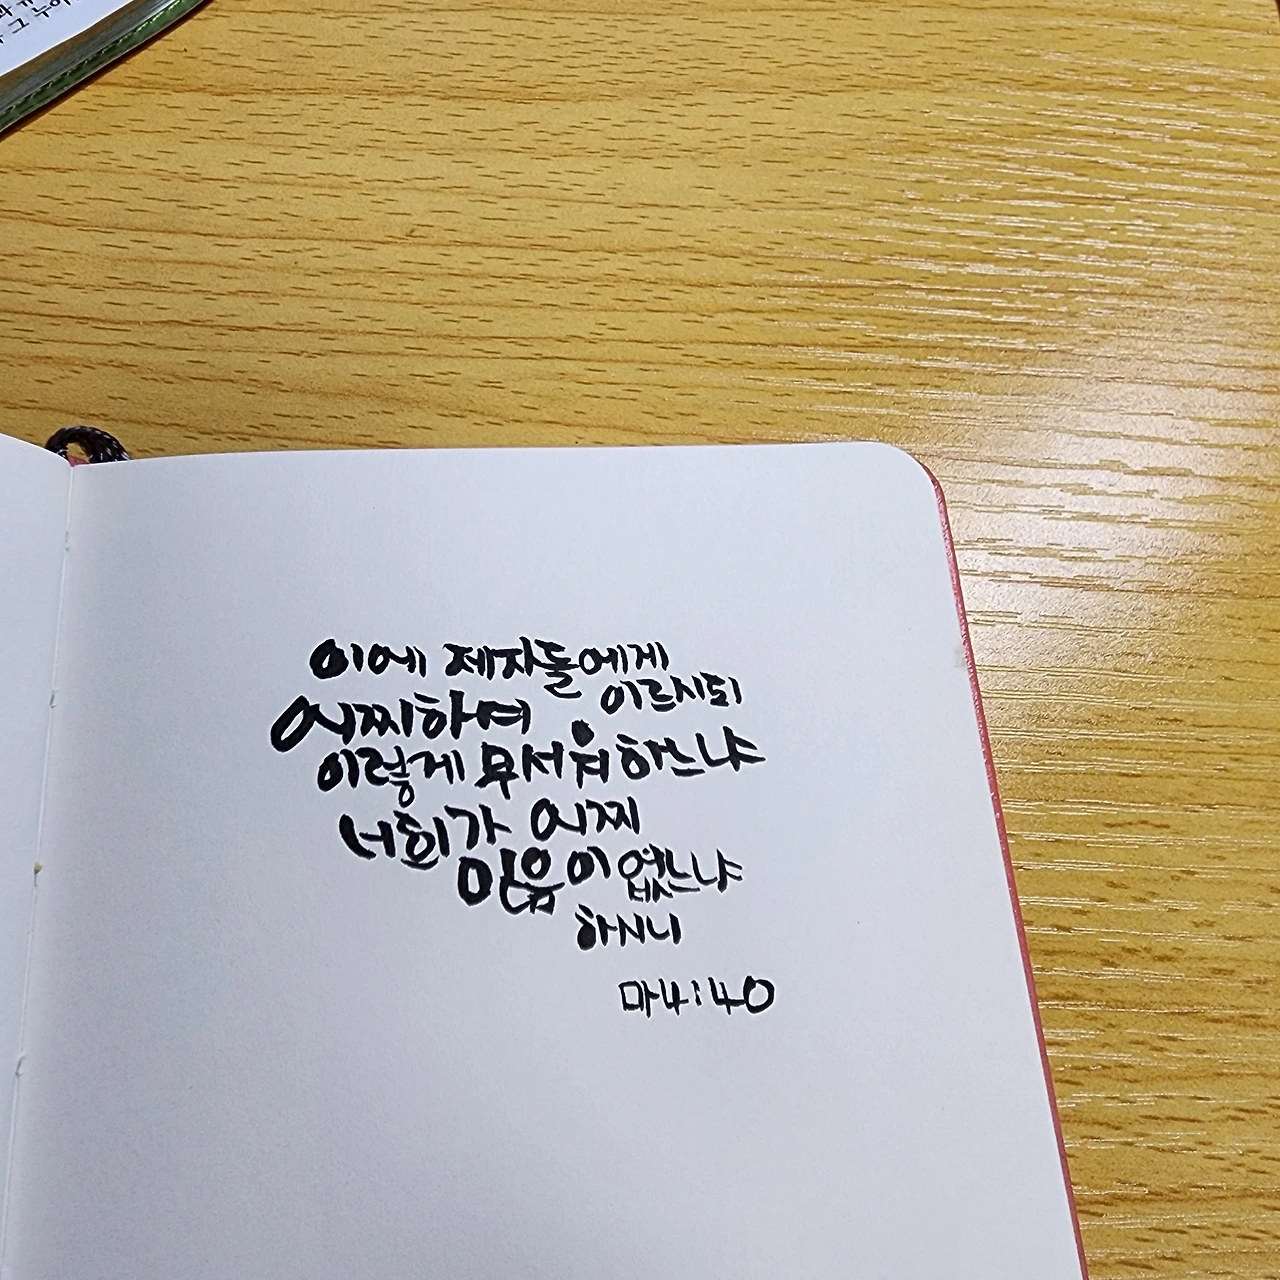 이에 제자들에게
이르시되
어찌하여
이렇게 무서워하느냐
너희가 어찌
믿음이 없느냐
하시니
마4:40